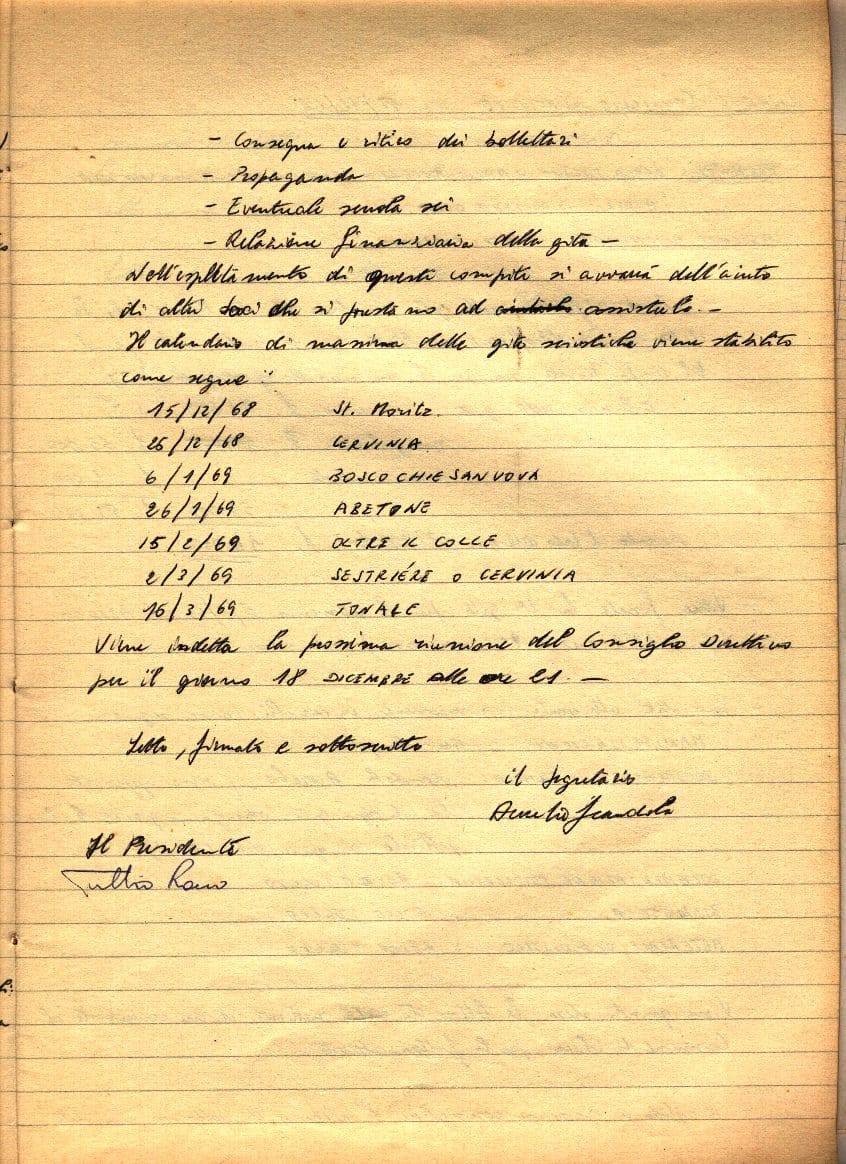 - Consegna e ritiro dei bollettari
- Propaganda
- Eventuale scuola sci
- Relazione finanziaria della gita -
Nell'espletamento di questi compiti si avvarrà dell'aiuto
di altri soci che si prestino ad assisterlo. -
Il calendario di massima delle gite sciistiche viene stabilito
come segue :
15/12/68 St. Moritz.
25/12/68 CERVINIA
6/1/69 BOSCOCHIESANUOVA
26/1/69 ABETONE
15/2/69 OLTRE IL COLLE
2/3/69 SESTRIÉRE O CERVINIA
16/3/69 TONALE
Viene indetta la prossima riunione del Consiglio Direttivo
per il giorno 18 DICEMBRE alle ore 21. -
Letto, firmato e sottoscritto
il Segretario
Aurelio
Il Presidente
Tullio